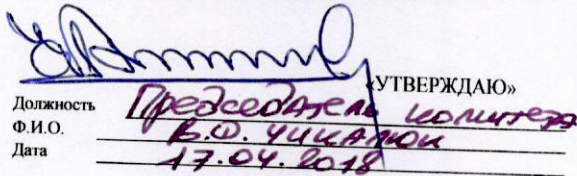 «УТВЕРЖДАЮ»
Должность Председатель комитета
Ф.И.О. В.Ф. Чикалюк
Дата 17.04.2018